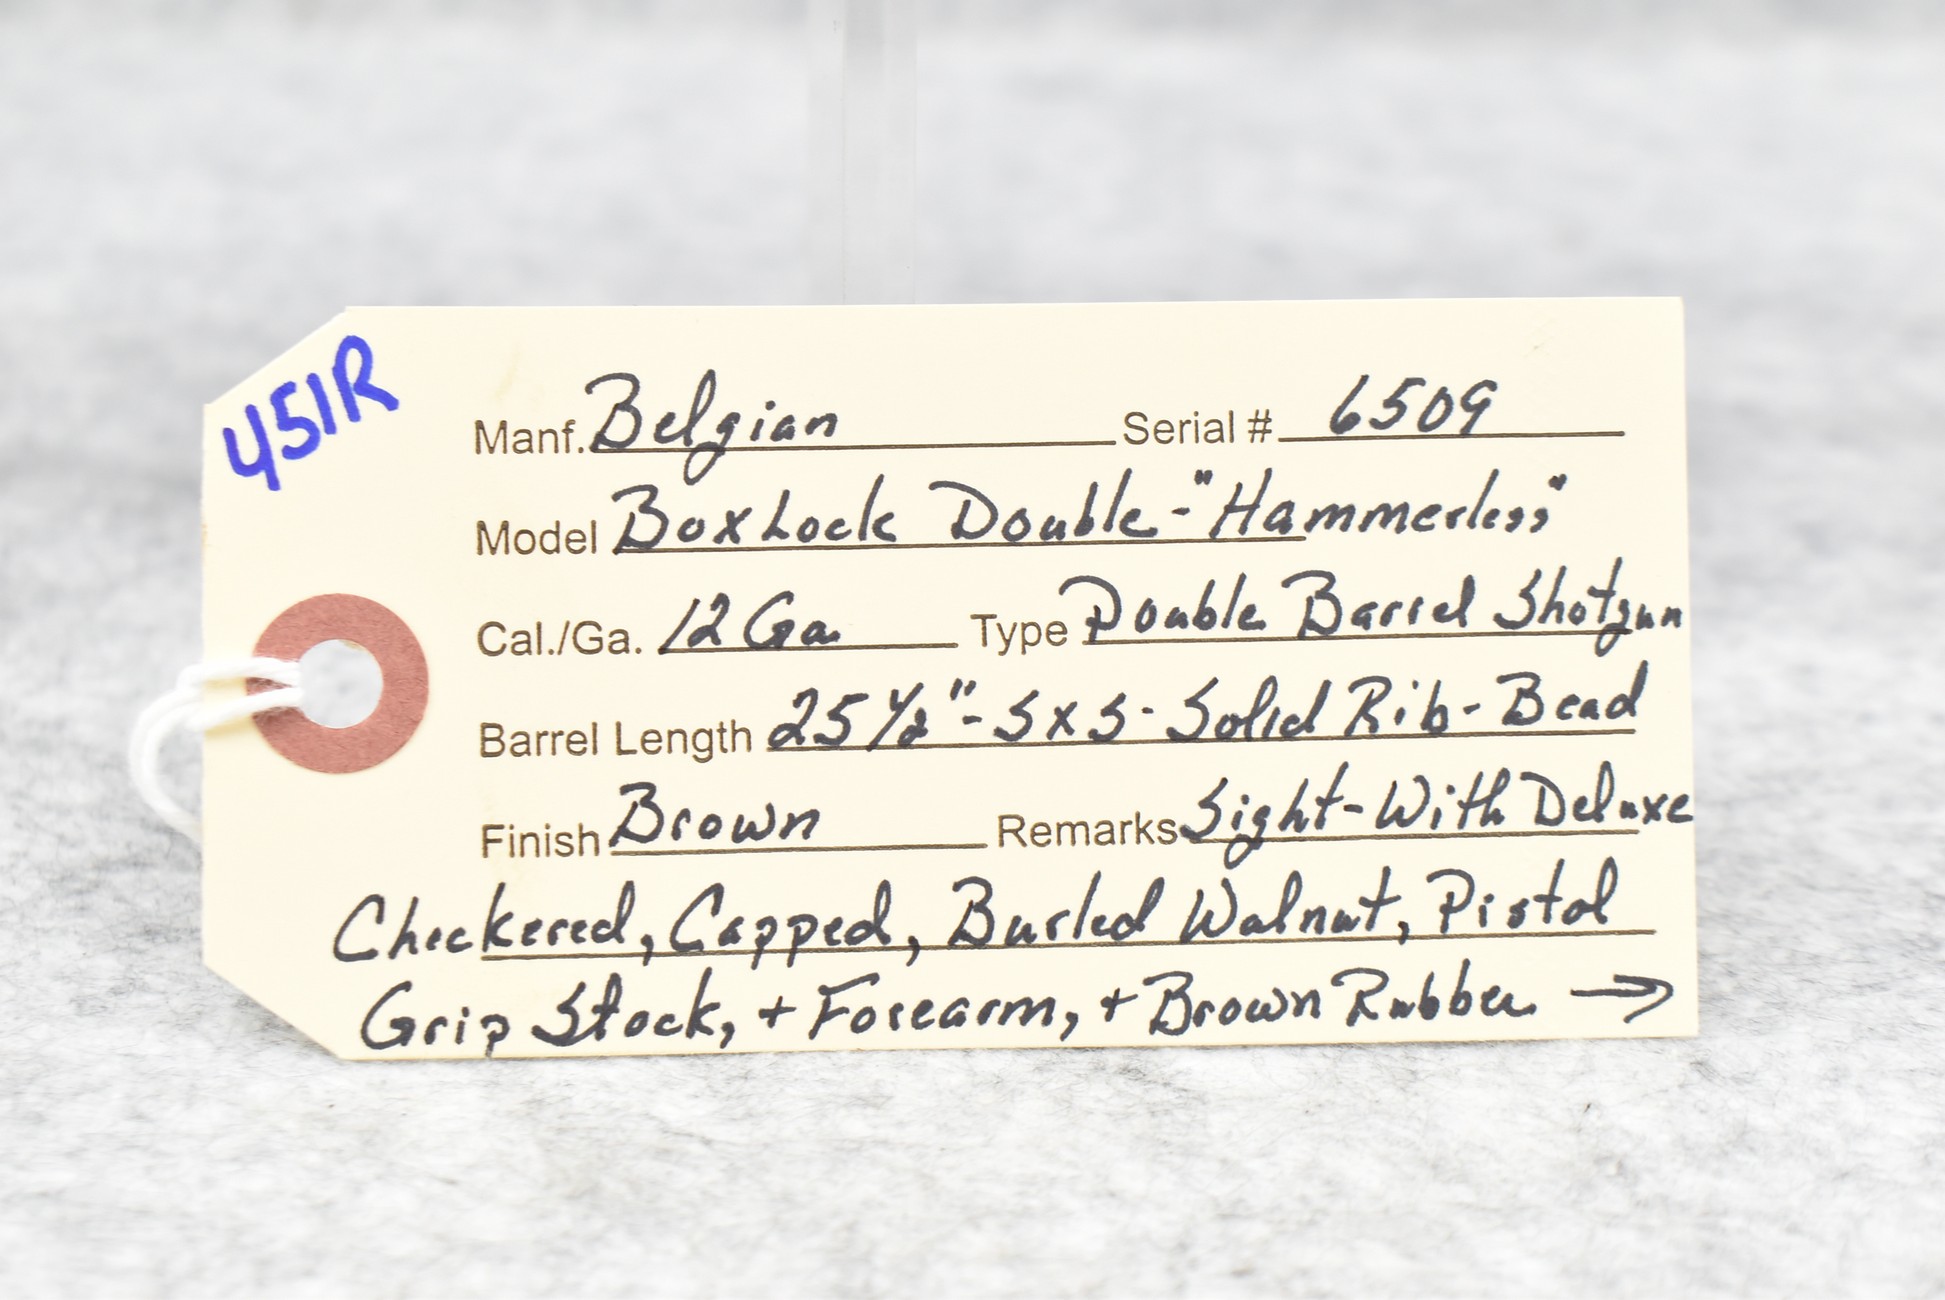 451R
Manf. Belgian Serial # 6509
Model BoxLock Double-"Hammerless"
Cal./Ga. 12 Ga. Type Double Barrel Shotgun
Barrel Length 25 1/2"- SxS- Solid Rib- Bead
Finish Brown Remarks Sight-With Deluxe
Checkered, Capped, Burled Walnut, Pistol
Grip Stock, + Forearm, + Brown Rubber →